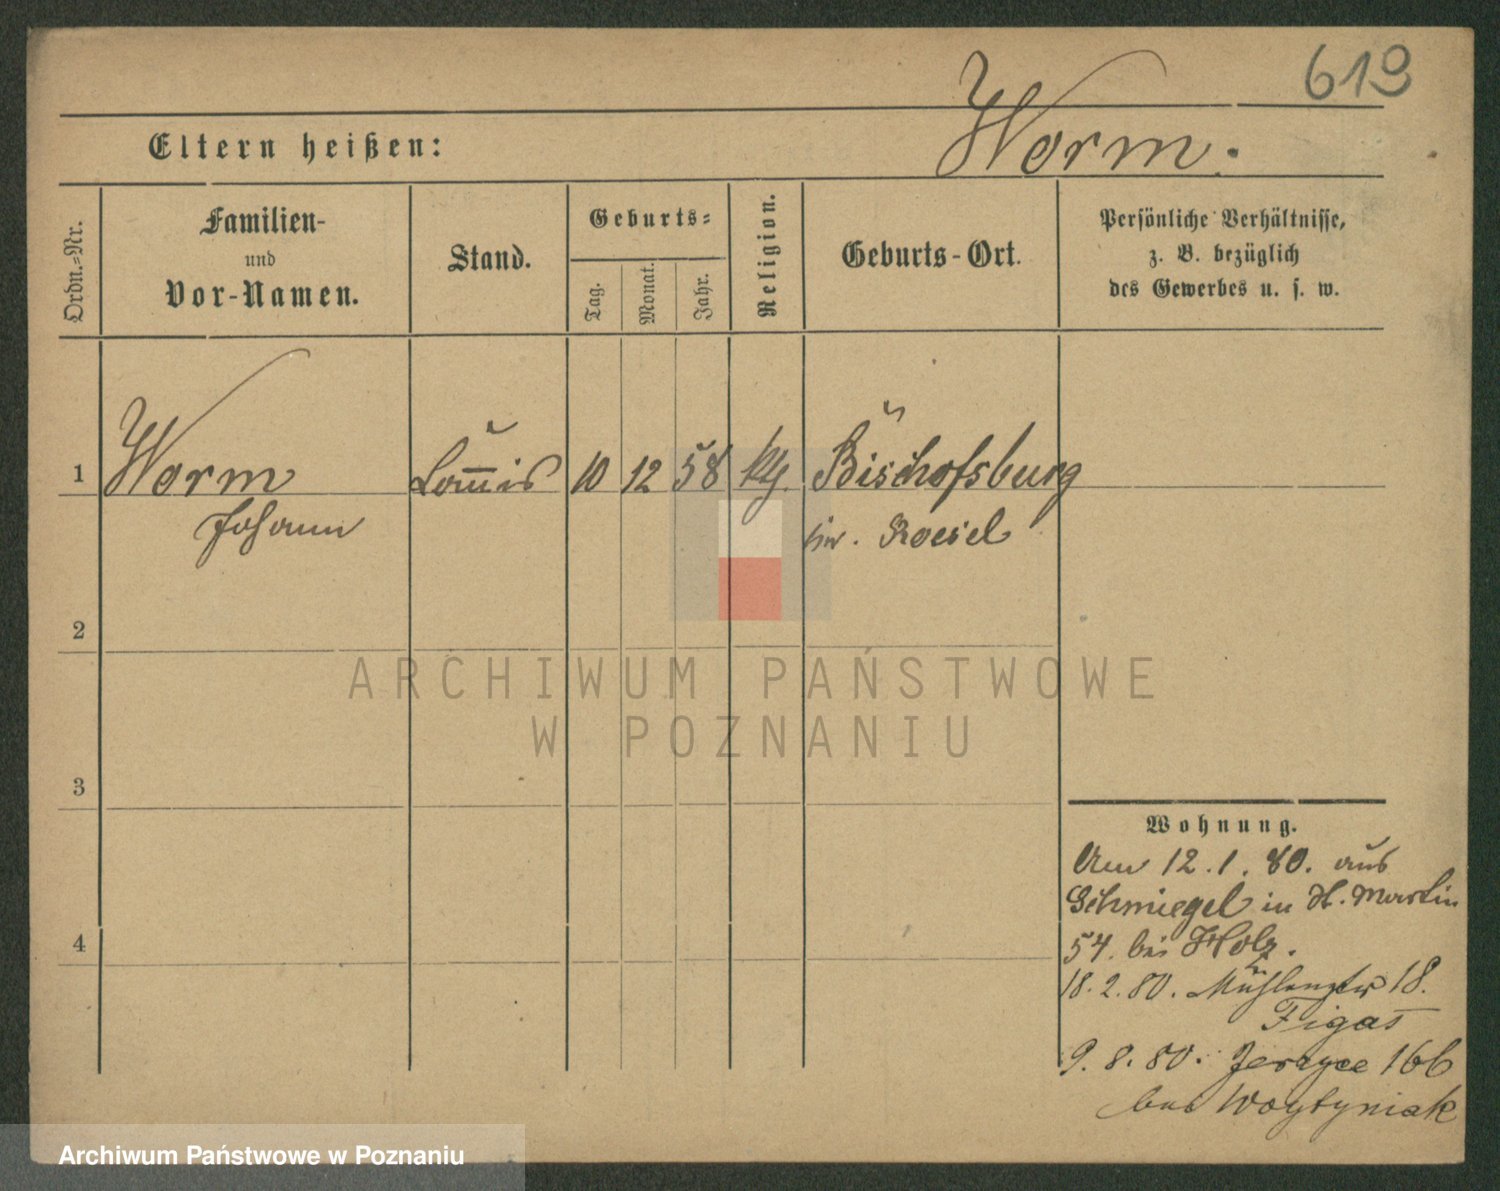 619
Worm.
Eltern heißen:
Ordn.-Nr.
Familien-
und
Vor-Namen.
Stand.
Geburts-
Tag.
Monat.
Jahr.
Religion.
Geburts-Ort.
Persönliche Verhältnisse,
z. B. bezüglich
des Gewerbes u. s. w.
1 Worm 10 12 58 Bischofsburg
Johann Roesel
2
3
4
Wohnung.
Am 12.1.80. aus
Schmiegel in St. Martin
54. bei Holz.
18.2.80. Mühlenstr 18.
Figas
9.8.80. Jerzyce 166
bei Woytyniak
ARCHIWUM PAŃSTWOWE
W POZNANIU
Archiwum Państwowe w Poznaniu